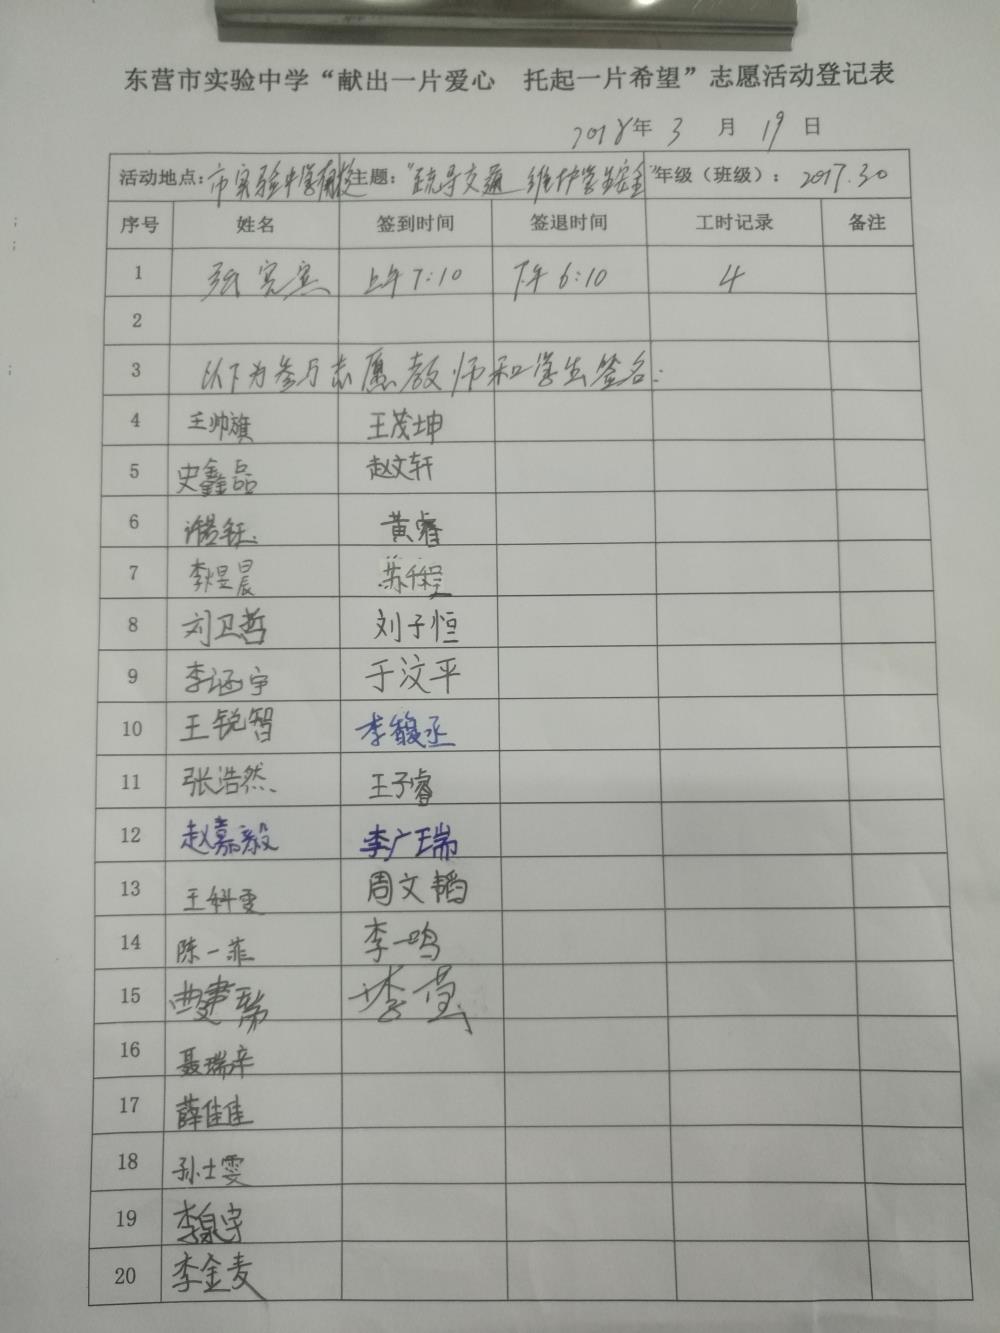 东营市实验中学“献出一片爱心 托起一片希望”志愿活动登记表
2018年 3 月 19 日
活动地点：市实验中学南校 主题：“疏导交通 维护学生安全”年级（班级）：2017.30
序号 姓名 签到时间 签退时间 工时记录 备注
1 张宾 上午7:10 下午6:10 4
2
3 以下为参与志愿教师和学生签名：
4 王帅旗 王茂坤
5 史鑫磊 赵文轩
6 钰 黄睿
7 李煜晨 苏程
8 刘卫哲 刘子恒
9 李涵宇 于汶平
10 王锐智 李馥丞
11 张浩然 王子睿
12 赵嘉毅 李广瑞
13 王科雯 周文韬
14 陈一菲 李一鸣
15 曲建瑞 李莹
16 聂瑞辛
17 薛佳佳
18 孙士雯
19 李泉宇
20 李金麦